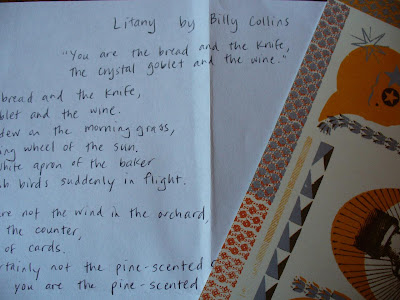 Litany by Billy Collins
"You are the bread and the knife,
the crystal goblet and the wine."
bread and the knife,
blet and the wine.
dew on the morning grass,
ng wheel of the sun.
hite apron of the baker
sh birds suddenly in flight.
re not the wind in the orchard,
the counter,
of cards.
rtainly not the pine-scented
you are the pine-scented